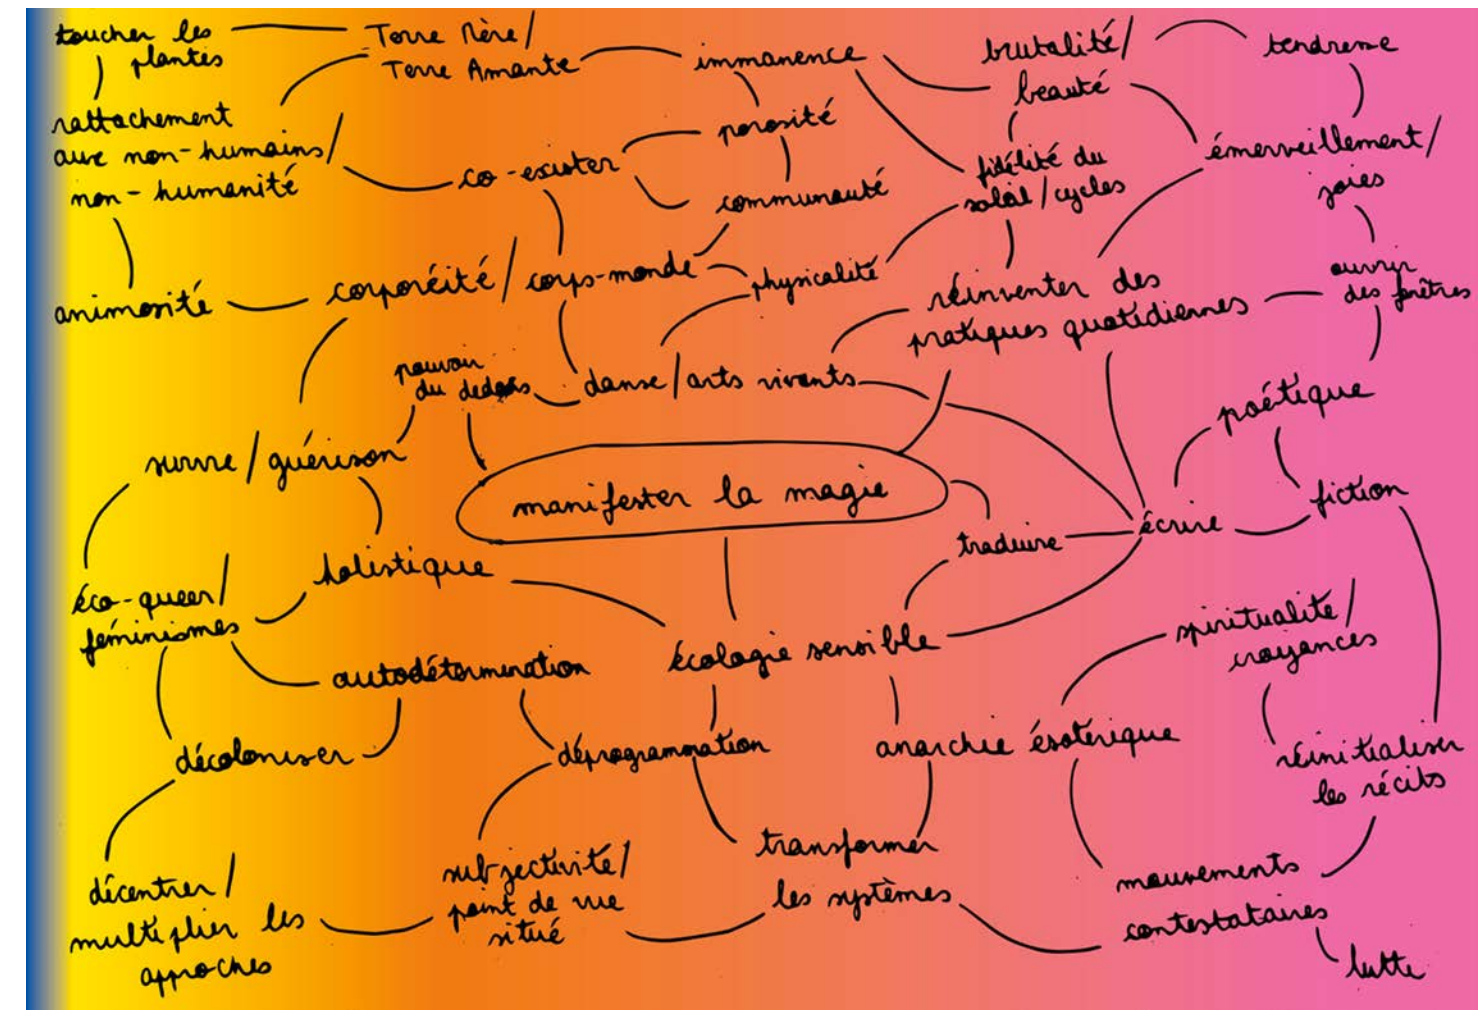 toucher les
plantes
Terre Mère/
Terre Amante
immanence
brutalité/
beauté
tendresse
rattachement
aux non-humains/
non-humanité
co-exister
porosité
communauté
fidélité du
soleil/cycles
émerveillement/
joies
animosité
corporéité/corps-monde
physicalité
réinventer des
pratiques quotidiennes
ouvrir
des fenêtres
pouvoir
du dedans
danse/arts vivants
poétique
survivre/guérison
manifester la magie
fiction
traduire
écrire
holistique
éco-queer/
féminismes
autodétermination
écologie sensible
spiritualité/
croyances
décoloniser
déprogrammation
anarchie ésotérique
réinitialiser
les récits
décentrer/
multiplier les
approches
subjectivité/
point de vue
situé
transformer
les systèmes
mouvements
contestataires
lutte